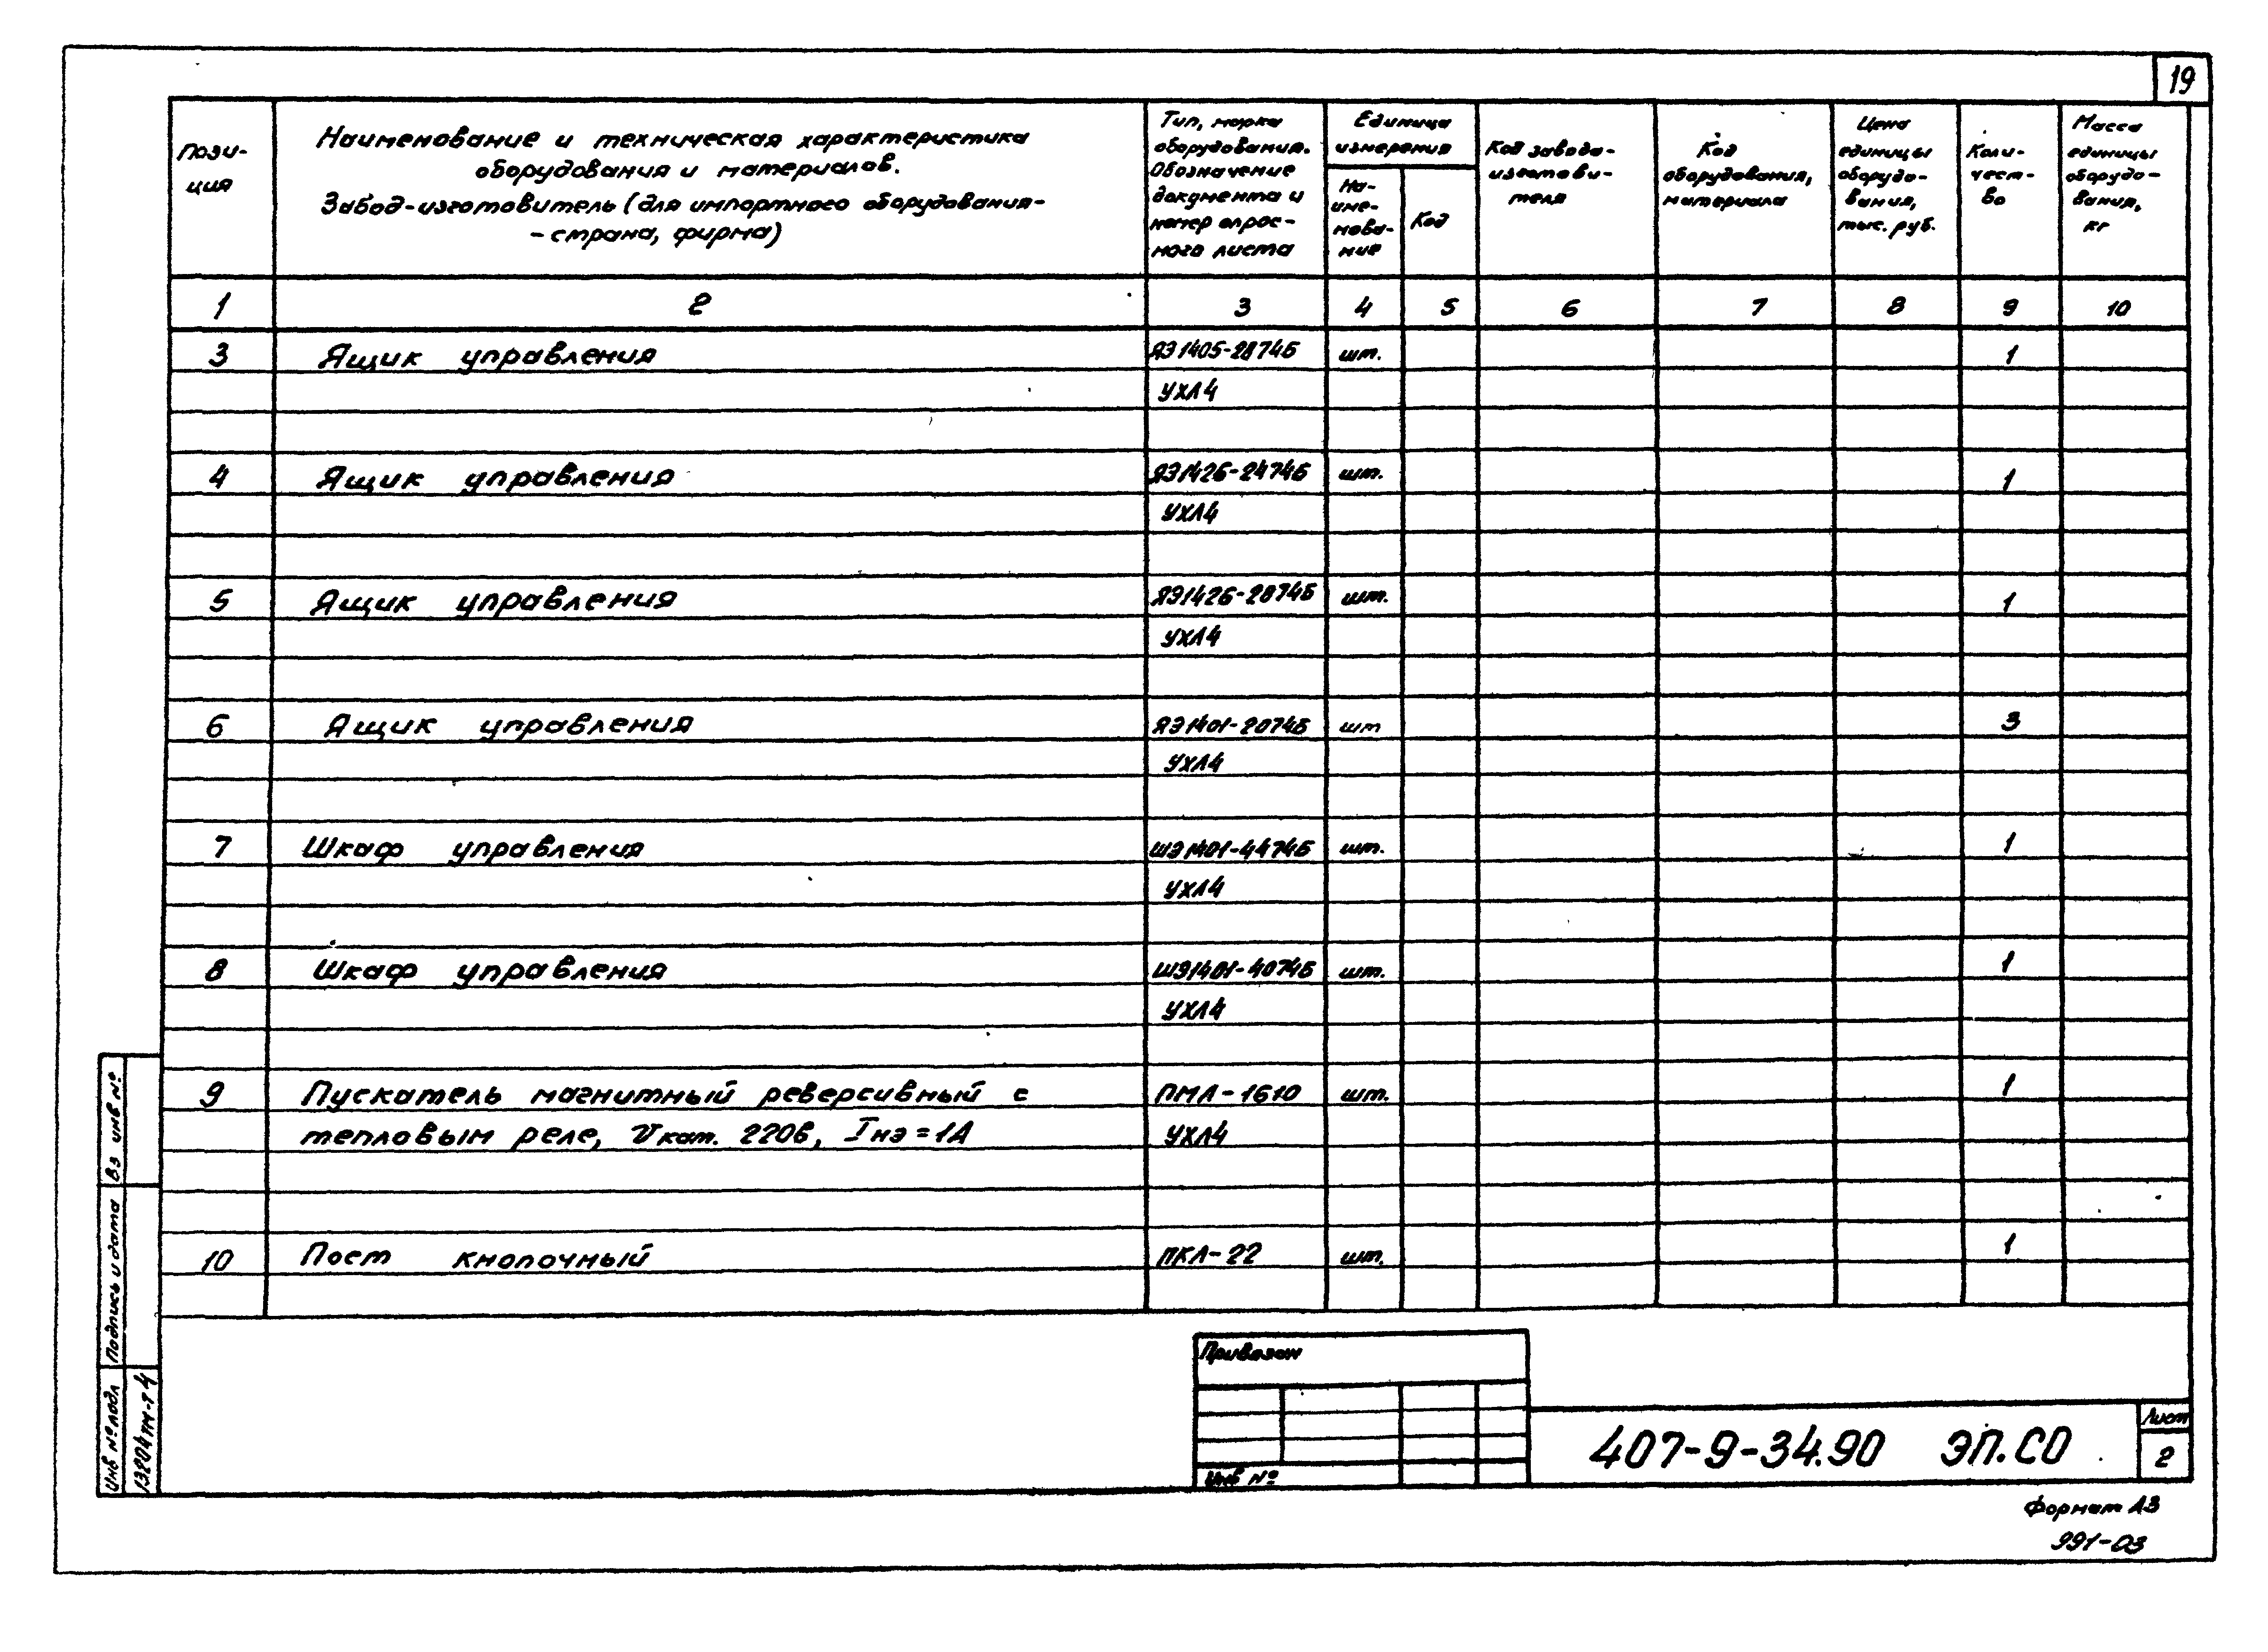 19
Пози-
ция
Наименование и техническая характеристика
оборудования и материалов.
Завод-изготовитель (для импортного оборудования-
- страна, фирма)
Тип, марка
оборудования.
Обозначение
документа и
номер опрос-
ного листа
Единица
измерения
На-
име-
нова-
ние
Код
Код завода-
изготови-
теля
Код
оборудования,
материала
Цена
единицы
оборудо-
вания,
тыс. руб.
Коли-
чест-
во
Масса
единицы
оборудо-
вания,
кг
1 2 3 4 5 6 7 8 9 10
3 Ящик управления ЯЭ1405-2874Б шт. 1
УХЛ4
4 Ящик управления ЯЭ1426-2474Б шт. 1
УХЛ4
5 Ящик управления ЯЭ1426-2874Б шт. 1
УХЛ4
6 Ящик управления ЯЭ1401-2074Б шт 3
УХЛ4
7 Шкаф управления ШЭ1401-4474Б шт. 1
УХЛ4
8 Шкаф управления ШЭ1401-4074Б шт. 1
УХЛ4
9 Пускатель магнитный реверсивный с ПМЛ-1610 шт. 1
тепловым реле, Uкат. 220в, Iнэ=1А УХЛ4
10 Пост кнопочный ПКЛ-22 шт. 1
Вз инв №
Подпись и дата
Инв № подл
13204тм-т4
Привязан
Инв №
407-9-34.90 ЭП.СО
Лист
2
Формат А3
991-03